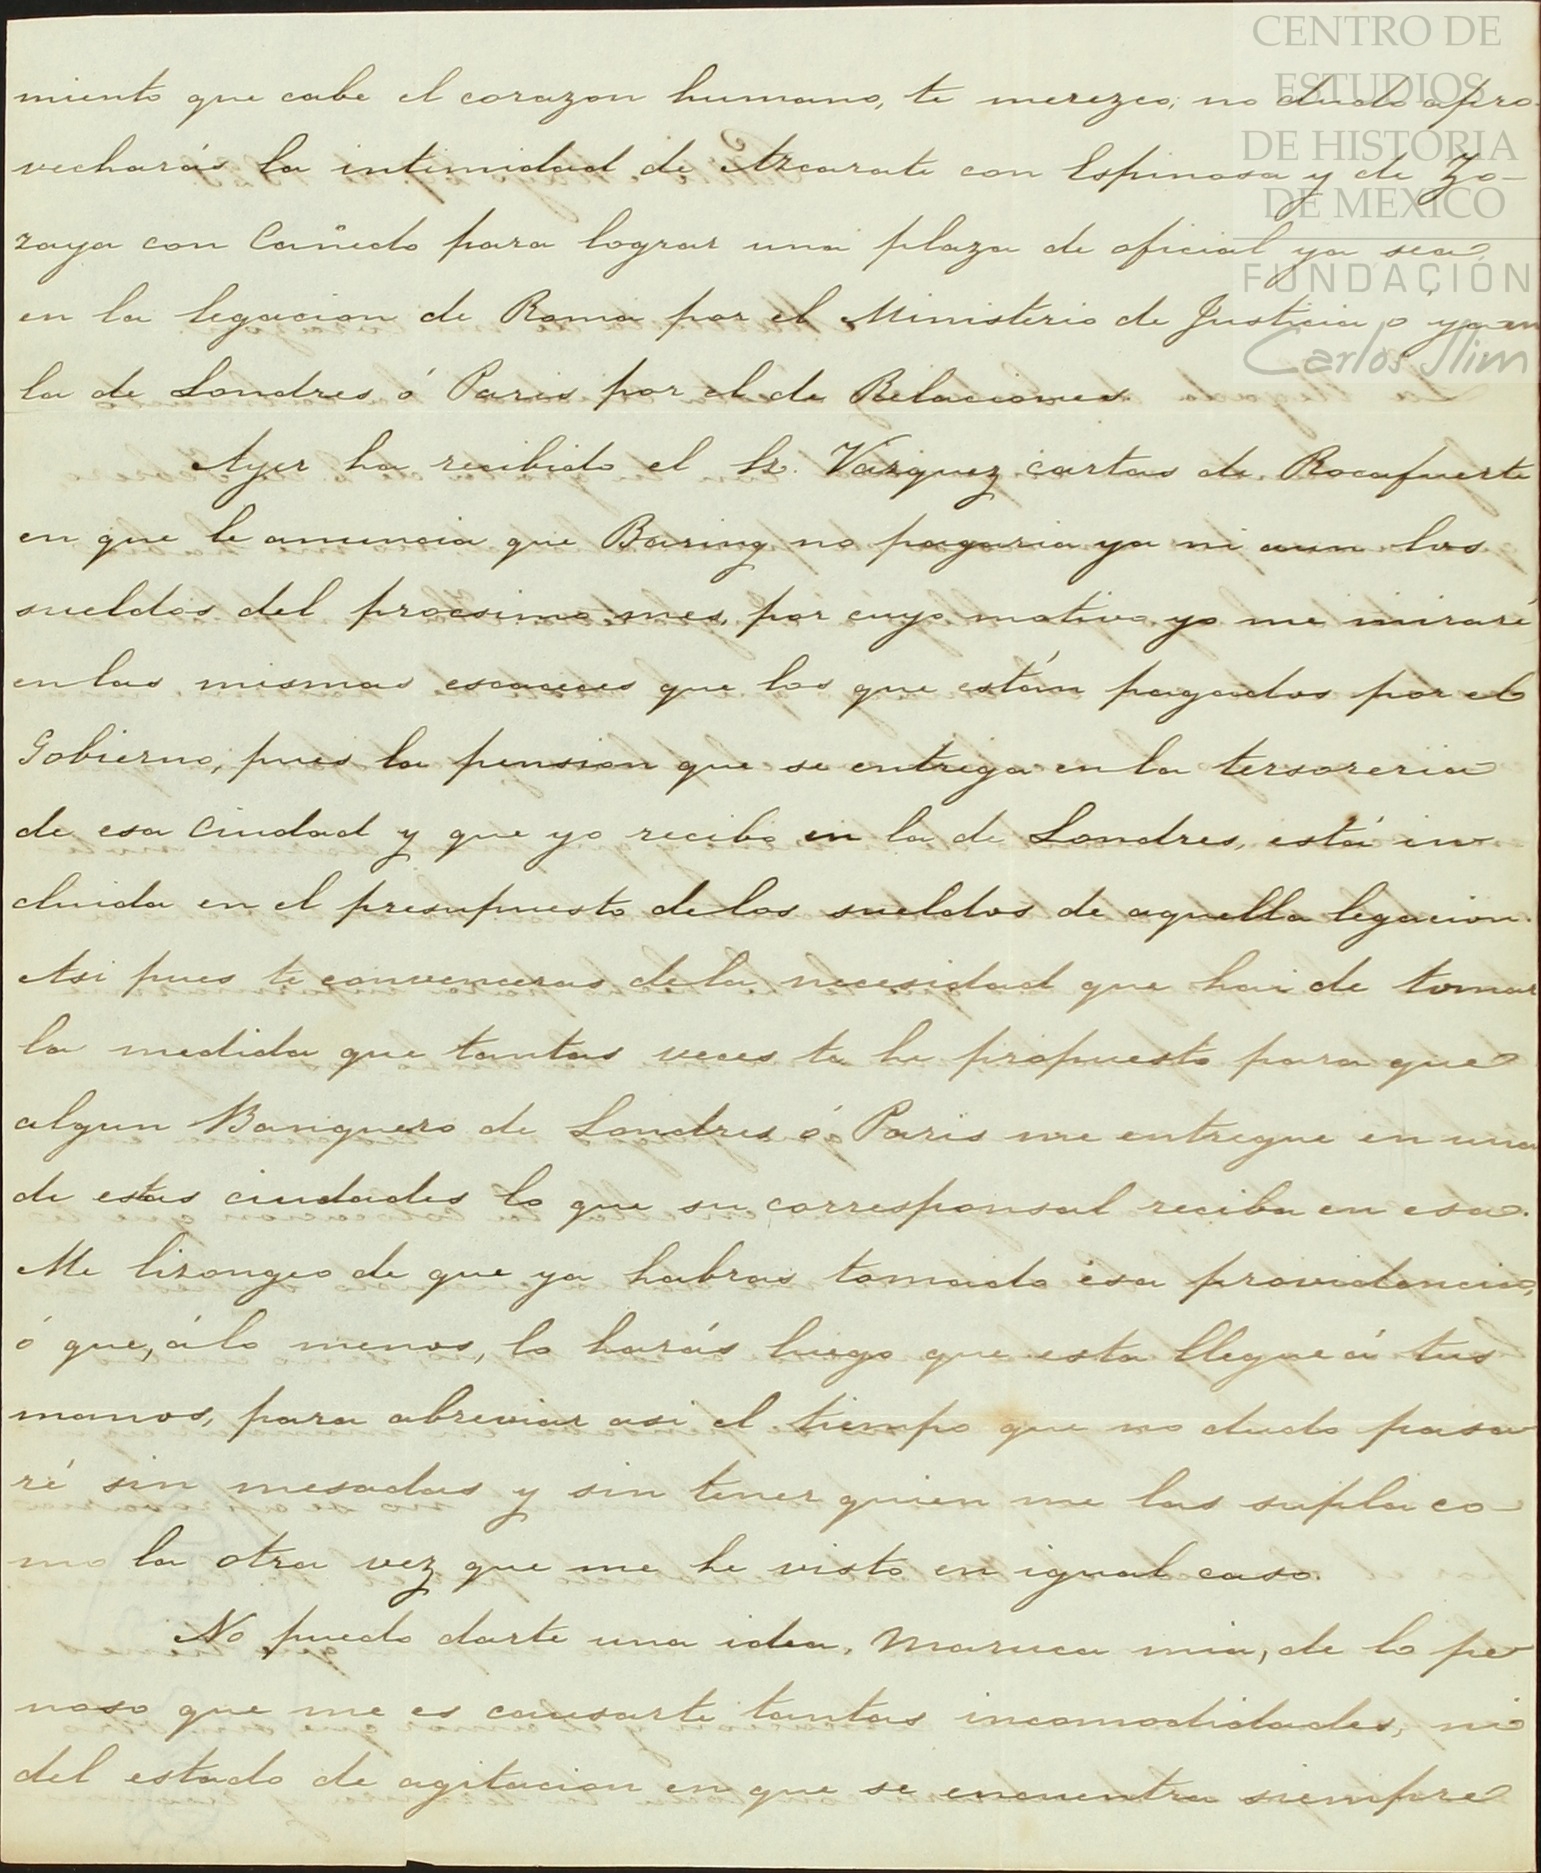 CENTRO DE
ESTUDIOS
DE HISTORIA
DE MEXICO
FUNDACIÓN
Carlos Slim
miento que cabe el corazon humano, te merezco; no dudo apro
vecharás la intimidad de Azcarate con Espinosa y de Zo-
zaya con Cañedo para lograr una plaza de oficial ya sea
en la legacion de Roma por el Ministerio de Justicia ó ya en
la de Londres ó Paris por el de Relaciones.
Ayer ha recibido el Sr. Vazquez cartas de Rocafuerte
en que le anuncia que Baring no pagaria ya ni aun los
sueldos del procsimo mes, por cuyo motivo yo me miraré
en las mismas escaceces que los que están pagados por el
Gobierno, pues la pension que se entrega en la tersoreria
de esa Ciudad y que yo recibo en la de Londres, está in
cluida en el presupuesto de los sueldos de aquella legacion.
Asi pues te convenceras de la necesidad que hai de tomar
la medida que tantas veces te he propuesto para que
algun Banquero de Londres ó Paris me entregue en una
de estas ciudades lo que su corresponsal reciba en esa.
Me lisongeo de que ya habras tomado esa providencia,
ó que, á lo menos, lo harás luego que esta llegue á tus
manos, para abreviar asi el tiempo que no dudo pasa
ré sin mesadas y sin tener quien me las supla co
mo la otra vez que me he visto en igual caso.
No puedo darte una idea, Maruca mia, de lo pe
noso que me es causarte tantas incomodidades, ni
del estado de agitacion en que se encuentra siempre